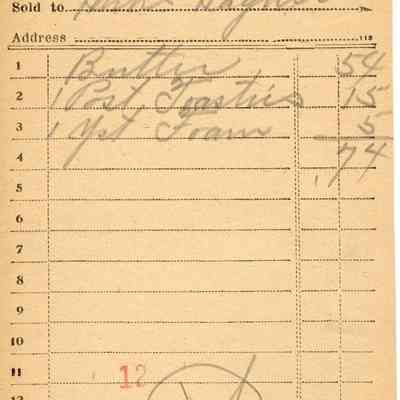 Sold to Wagner
Address
1 Butter 54
2 1 Post Toasties 15
3 1 Yst Foam 5
4 .74
5
6
7
8
9
10
11
12